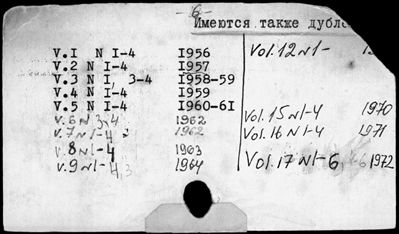 - 6 -
Имеются также дубле
V.I N I-4 I956
V.2 N I-4 I957
V.3 N I, 3-4 I958-59
V.4 N I-4 I959
V.5 N I-4 I960-6I
V.6 N 3-4 1962
V.7 N1-4 1962
V.8 N1-4 1963
V.9 N1-4 1964
Vol.12 N1-
Vol.15 N1-4 1970
Vol.16 N1-4 1971
Vol.17 N1-6 1972